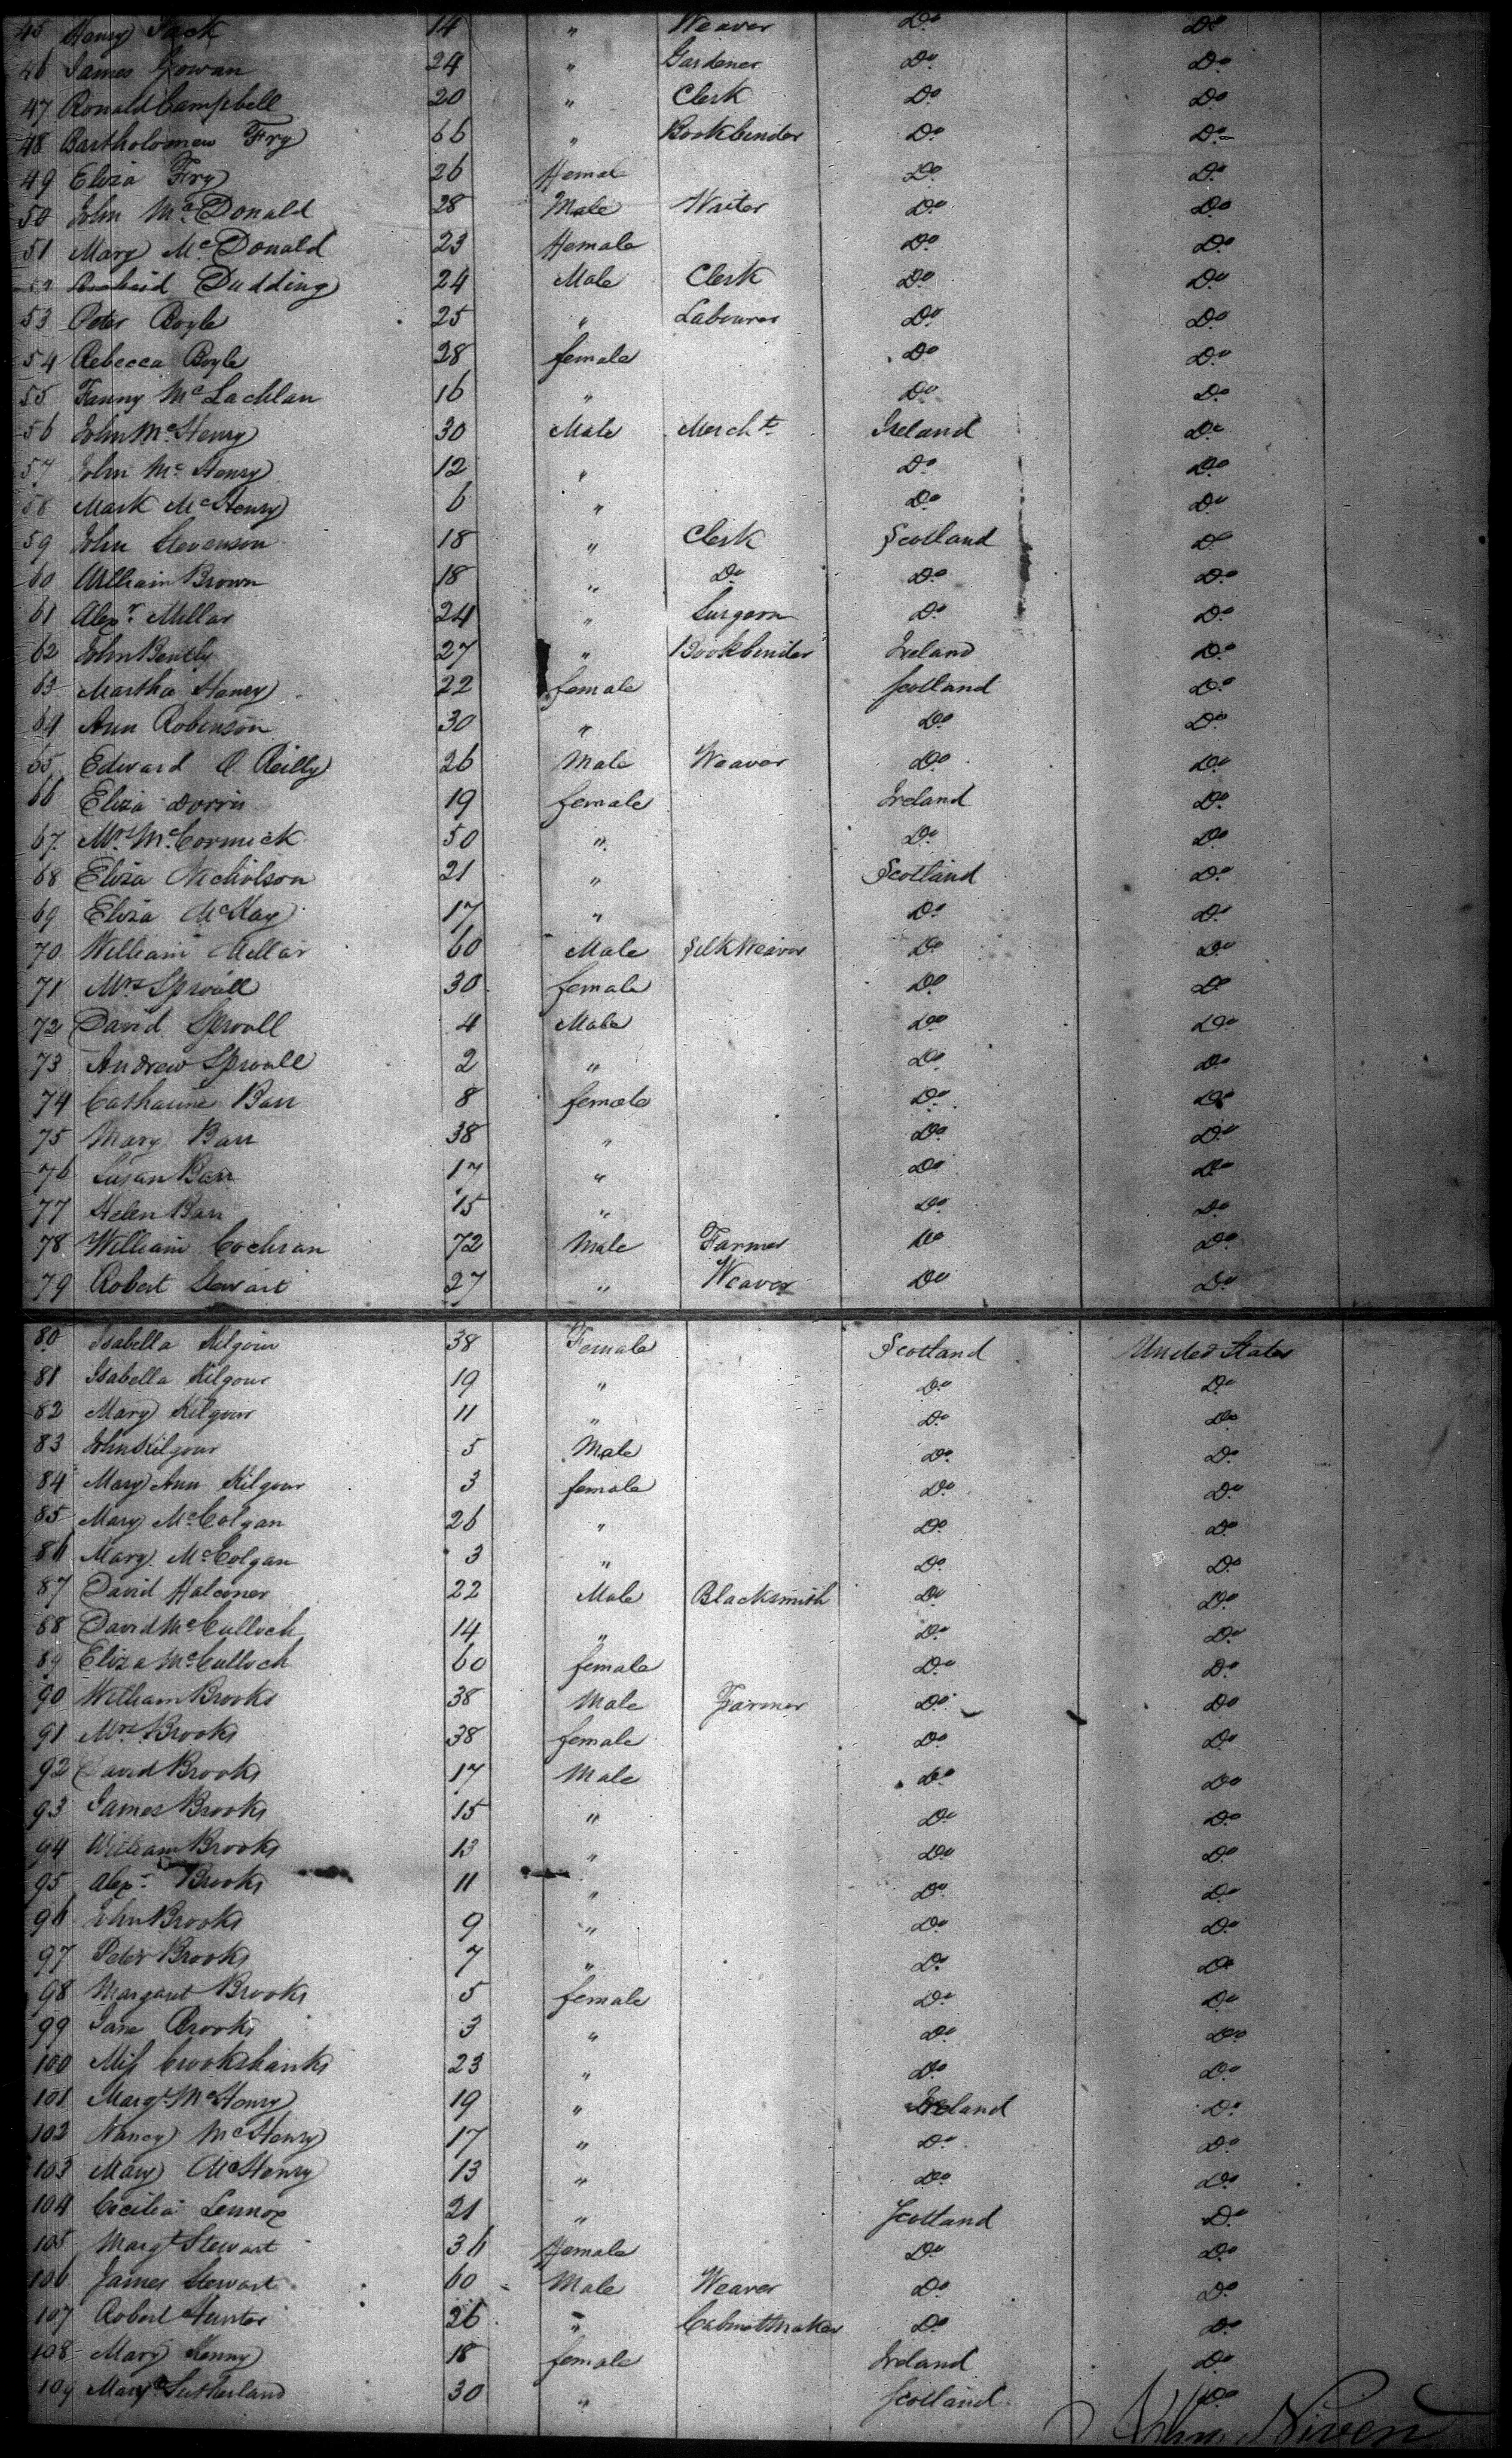 45 Henry Jack 14 " Weaver Do Do
46 James Gowan 24 " Gardener Do Do
47 Ronald Campbell 20 " Clerk Do Do
48 Bartholomew Fry 66 " Bookbinder Do Do
49 Eliza Fry 26 Femal Do Do
50 John Mc Donald 28 Male Waiter Do Do
51 Mary Mc Donald 23 Female Do Do
Dudding 24 Male Clerk Do Do
53 Peter Boyle 25 " Labourer Do Do
54 Rebecca Boyle 28 female Do Do
55 Fanny Mc Lachlan 16 " Do Do
56 John McHenry 30 Male Mercht Ireland Do
57 John Mc Henry 12 " Do Do
58 Mark McHenry 6 " Do Do
59 John Stevenson 18 " Clerk Scotland Do
60 William Brown 18 " Do Do Do
61 Alexr Millar 24 " Surgeon Do Do
62 John Bently 27 " Bookbinder Ireland Do
63 Martha Haney 22 female Scotland Do
64 Ann Robinson 30 " Do Do
65 Edward O Reilly 26 Male Weaver Do Do
66 Eliza Dorris 19 female Ireland Do
67 Mrs McCormick 50 " Do Do
68 Eliza Nicholson 21 " Scotland Do
69 Eliza McKay 17 " Do Do
70 William Millar 60 Male Silk Weaver Do Do
71 Mrs Sproull 30 female Do Do
72 David Sproull 4 Male Do Do
73 Andrew Sproull 2 " Do Do
74 Catharine Barr 8 female Do Do
75 Mary Barr 38 " Do Do
76 Susan Barr 17 " Do Do
77 Helen Barr 15 " Do Do
78 William Cochran 72 Male Farmer Do Do
79 Robert Stewart 27 " Weaver Do Do
80 Isabella Kilgour 38 Female Scotland United States
81 Isabella Kilgour 19 " Do Do
82 Mary Kilgour 11 " Do Do
83 John Kilgour 5 Male Do Do
84 Mary Ann Kilgour 3 female Do Do
85 Mary McColgan 26 " Do Do
86 Mary McColgan 3 " Do Do
87 David Falconer 22 Male Blacksmith Do Do
88 David McCulloch 14 " Do Do
89 Eliza McCulloch 60 female Do Do
90 William Brooks 38 Male Farmer Do Do
91 Mrs Brooks 38 female Do Do
92 David Brooks 17 Male Do Do
93 James Brooks 15 " Do Do
94 William Brooks 13 " Do Do
95 Alexr Brooks 11 " Do Do
96 John Brooks 9 " Do Do
97 Peter Brooks 7 " Do Do
98 Margaret Brooks 5 female Do Do
99 Jane Brooks 3 " Do Do
100 Miss Crookshanks 23 " Do Do
101 Margt McHenry 19 " Ireland Do
102 Nancy McHenry 17 " Do Do
103 Mary McHenry 13 " Do Do
104 Cecilia Lennox 21 " Scotland Do
105 Margt Stewart 36 Female Do Do
106 James Stewart 60 Male Weaver Do Do
107 Robert Hunter 26 " Cabinetmaker Do Do
108 Mary Kenny 18 female Ireland Do
109 Mary Sutherland 30 " Scotland Do
John Niven